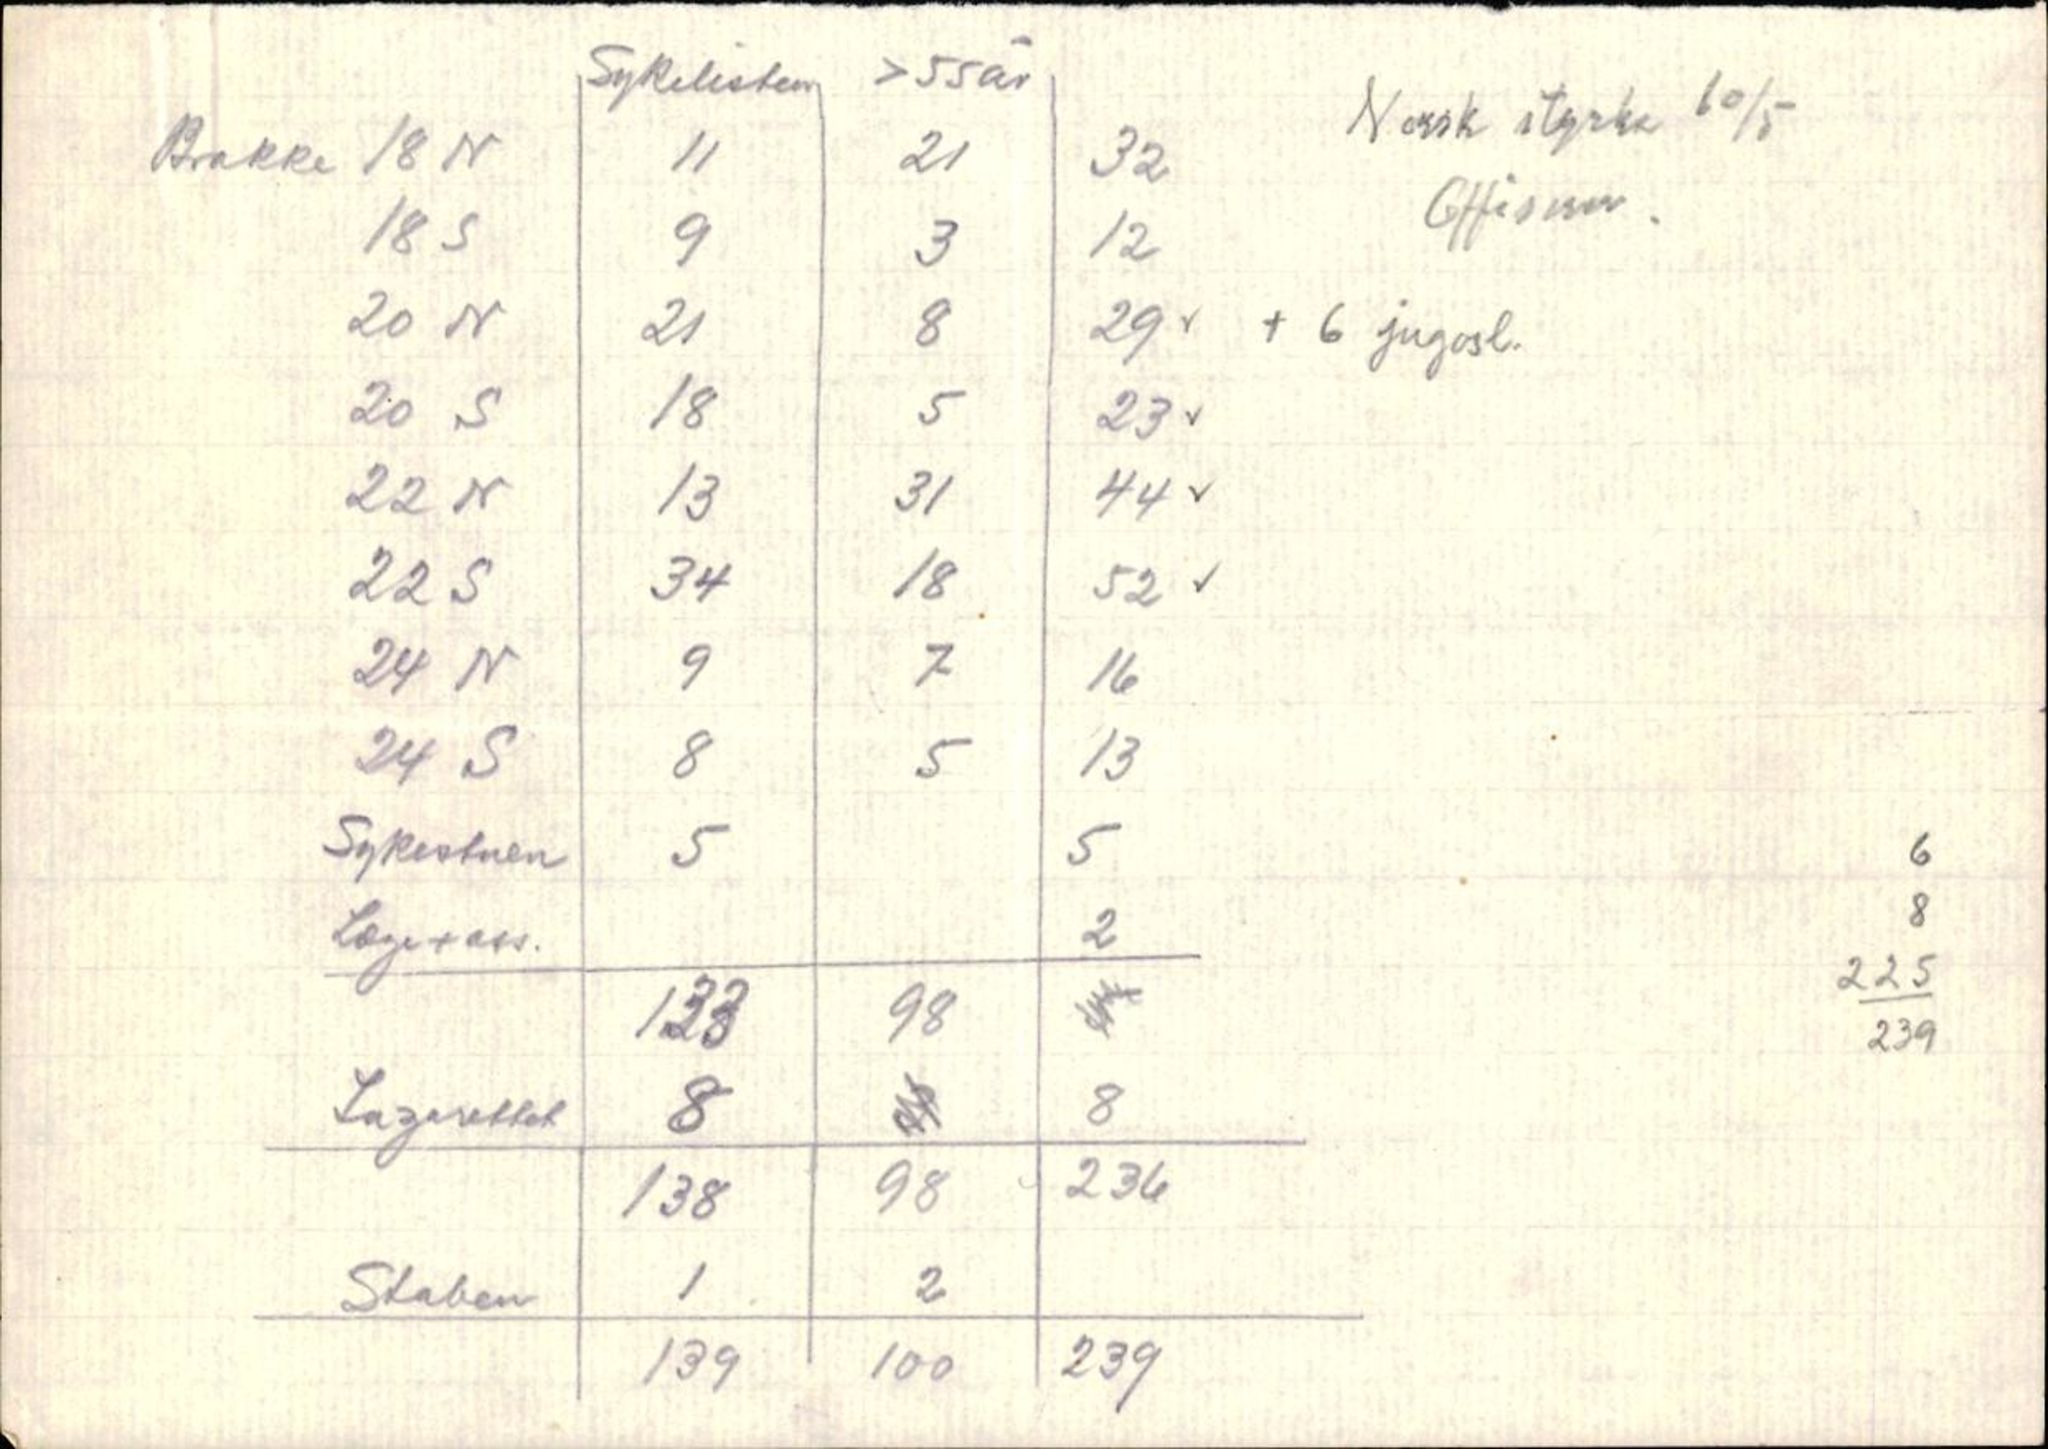 Sykelisten >55 år
Norsk styrke 10/5
Brakke 18 N 11 21 32
Offiserer.
18 S 9 3 12
20 N 21 8 29 ✓ + 6 jugosl.
20 S 18 5 23 ✓
22 N 13 31 44 ✓
22 S 34 18 52 ✓
24 N 9 7 16
24 S 8 5 13
Sykestuen 5 5
Læge + ass. 2
98
Lazarettet 8 8
138 98 236
Staben 1 2
139 100 239
6
8
225
239